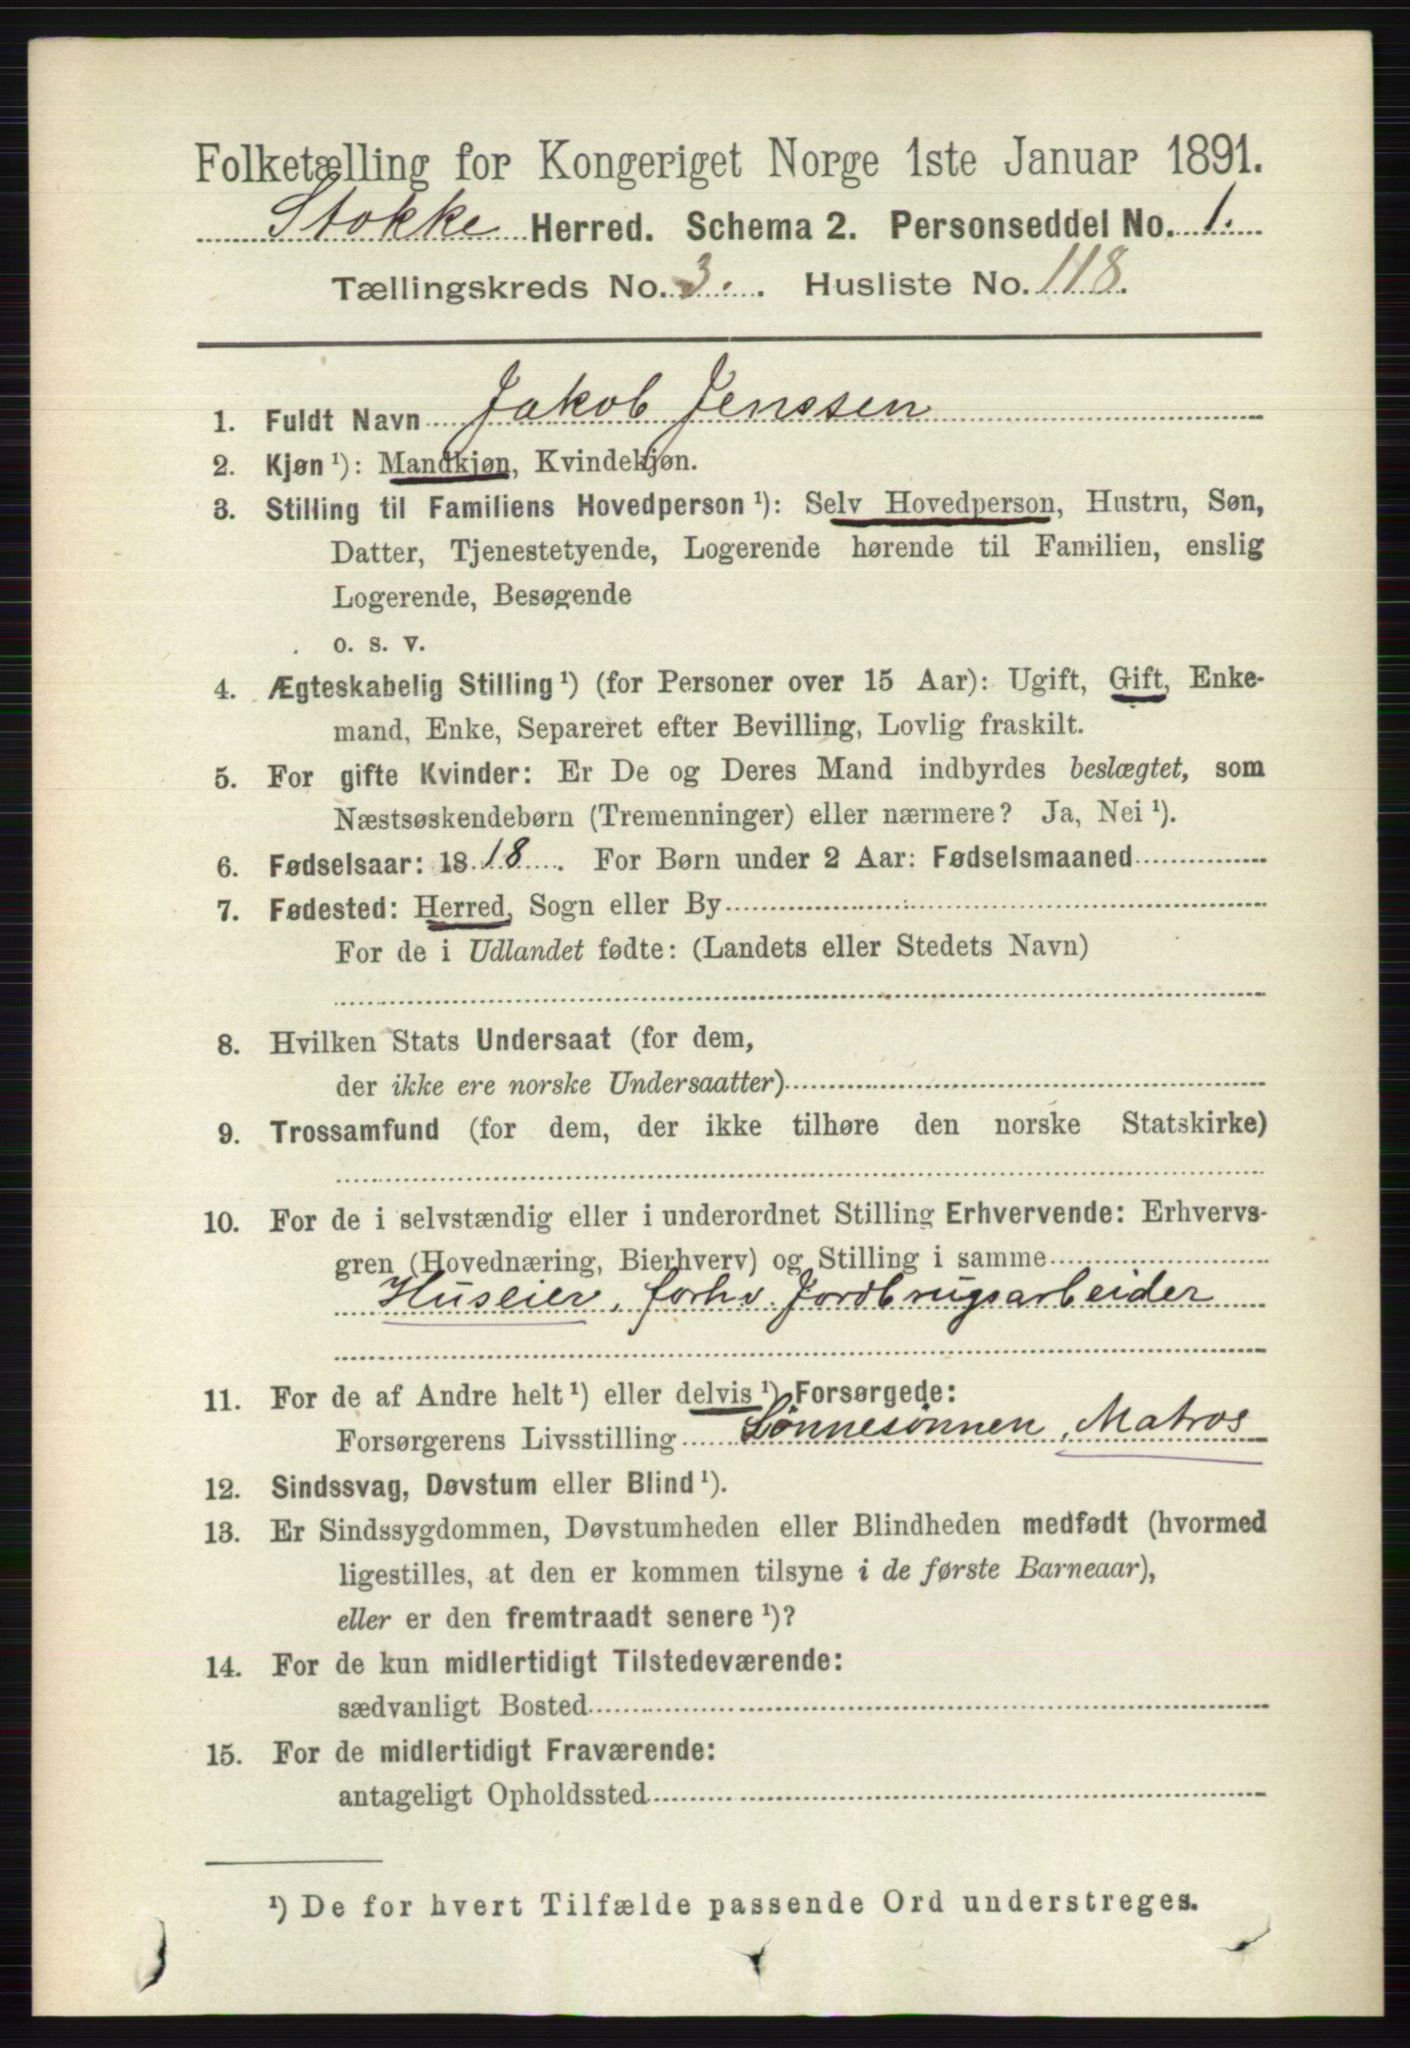 Folketælling for Kongeriget Norge 1ste Januar 1891.
Stokke Herred. Schema 2. Personseddel No. 1.
Tællingskreds No. 3. Husliste No. 118.
1. Fuldt Navn Jakob Jenssen
2. Kjøn ¹): Mandkjøn, Kvindekjøn.
3. Stilling til Familiens Hovedperson ¹): Selv Hovedperson, Hustru, Søn,
Datter, Tjenestetyende, Logerende hørende til Familien, enslig
Logerende, Besøgende
o. s. v.
4. Ægteskabelig Stilling ¹) (for Personer over 15 Aar): Ugift, Gift, Enke-
mand, Enke, Separeret efter Bevilling, Lovlig fraskilt.
5. For gifte Kvinder: Er De og Deres Mand indbyrdes beslægtet, som
Næstsøskendebørn (Tremenninger) eller nærmere? Ja, Nei ¹).
6. Fødselsaar: 1818. For Børn under 2 Aar: Fødselsmaaned
7. Fødested: Herred, Sogn eller By
For de i Udlandet fødte: (Landets eller Stedets Navn)
8. Hvilken Stats Undersaat (for dem,
der ikke ere norske Undersaatter)
9. Trossamfund (for dem, der ikke tilhøre den norske Statskirke)
10. For de i selvstændig eller i underordnet Stilling Erhvervende: Erhvervs-
gren (Hovednæring, Bierhverv) og Stilling i samme
Huseier, forhv. Jordbrugsarbeider
11. For de af Andre helt ¹) eller delvis ¹) Forsørgede:
Forsørgerens Livsstilling Sønnesønnen, Matros
12. Sindssvag, Døvstum eller Blind ¹).
13. Er Sindssygdommen, Døvstumheden eller Blindheden medfødt (hvormed
ligestilles, at den er kommen tilsyne i de første Barneaar),
eller er den fremtraadt senere ¹)?
14. For de kun midlertidigt Tilstedeværende:
sædvanligt Bosted
15. For de midlertidigt Fraværende:
antageligt Opholdssted
¹) De for hvert Tilfælde passende Ord understreges.